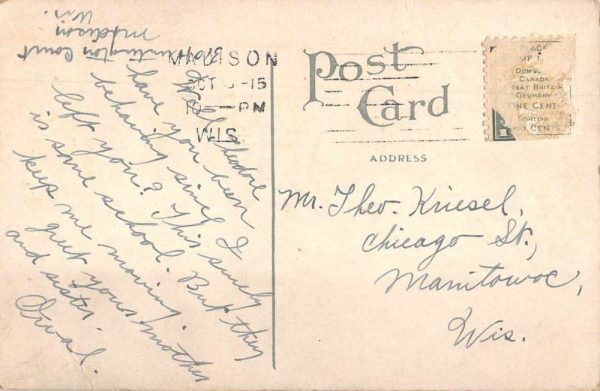 Huntington Court
Madison
Wis.
Well Theodore
have you been
behaving since I
left you? This surely
is some school. But they
keep me moving.
greet yours mother
and sister.
Orval.
MADISON
OCT -15
PM
WIS
Post
Card
ADDRESS
CANADA
GERMANY
CENT
CENTS
Mr. Theo. Kriesel,
Chicago St.,
Manitowoc,
Wis.